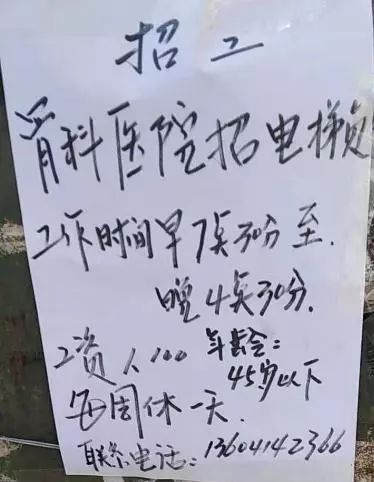 招工
骨科医院招电梯员
工作时间早7点30分至.
晚4点30分.
工资1100
年龄:
45岁以下
每周休一天.
联系电话:13604142366